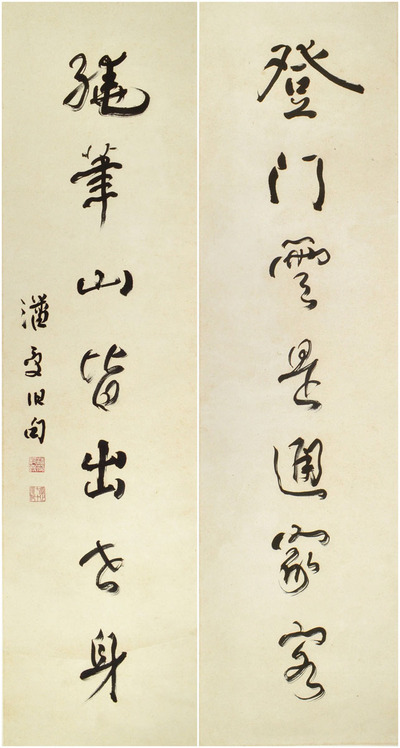 登门雲是通家客
繞筆山皆出世身
潘受旧句